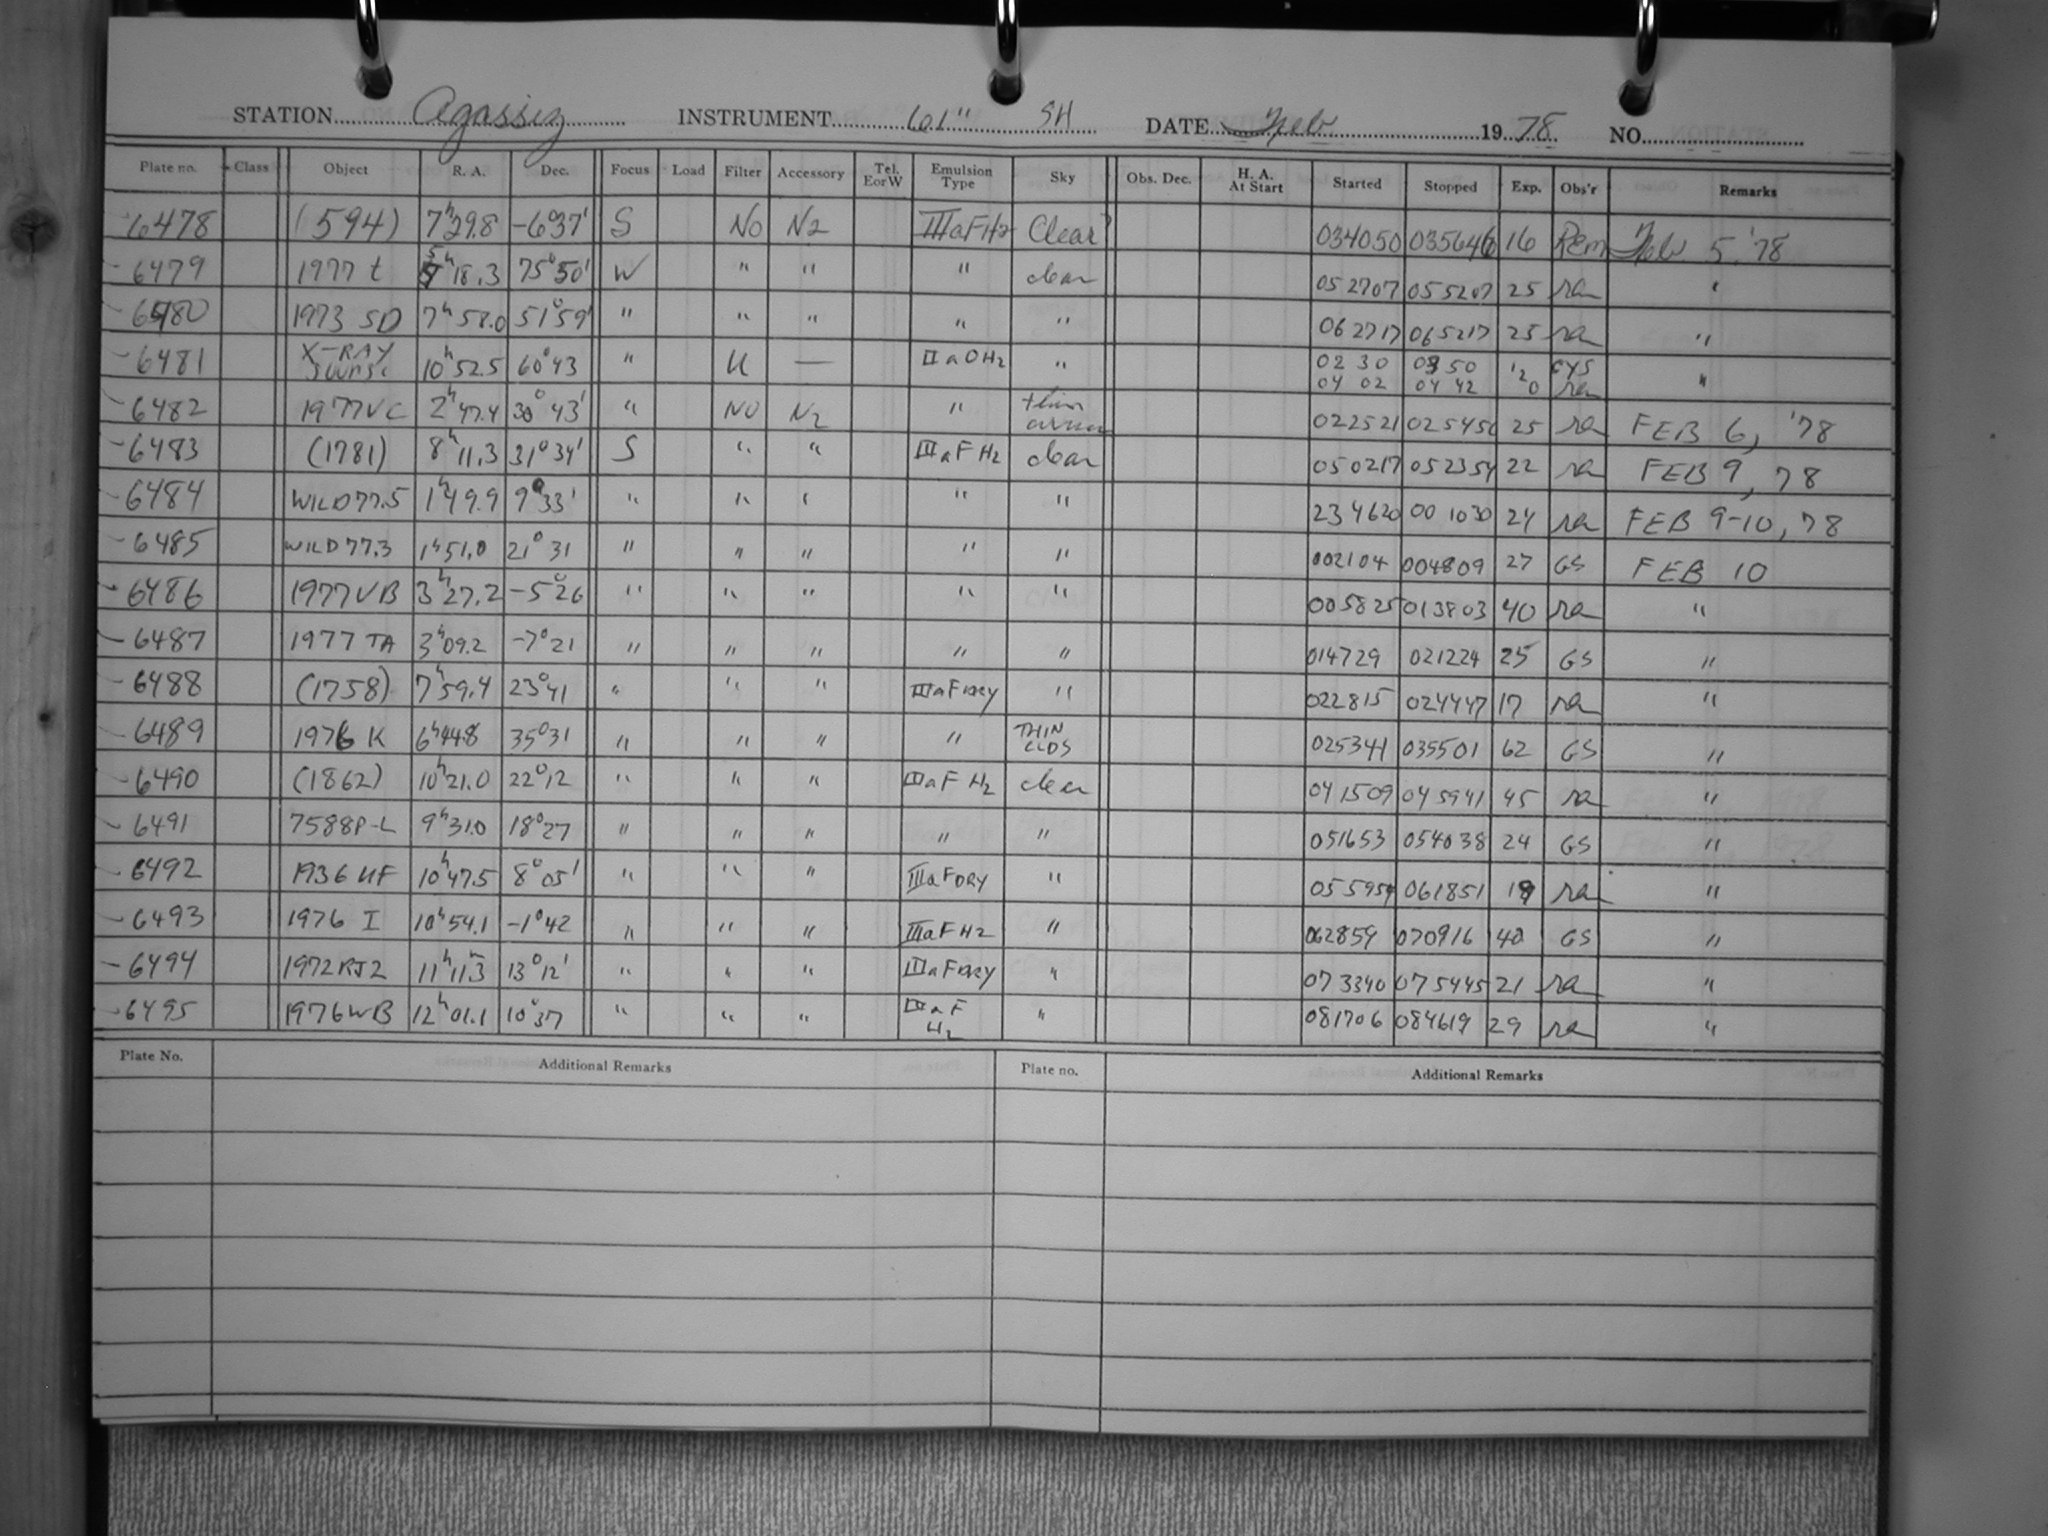 STATION Agassiz INSTRUMENT 61" SH DATE Feb 1978 NO.
Plate no. Class Object R. A. Dec. Focus Load Filter Accessory Tel. E or W Emulsion Type Sky Obs. Dec. H. A. At Start Started Stopped Exp. Obs'r Remarks
6478 (594) 7h29.8 -6°37' S No N2 IIIaFH2 Clear 034050 035646 16 REM Feb 5 '78
6479 1977 t 5h18.3 75°50' W " " " clear 052707 055207 25 ra "
6480 1973 SD 7h58.0 51°59' " " " " " 062717 065217 25 ra "
6481 X-RAY 10h52.5 60°43 " U — IIaOH2 " 02 30 03 50 CYS "
04 02 04 42 ra
6482 1977VC 2h47.4 30°43' " NO N2 " thin 022521 025450 25 ra FEB 6, '78
6483 (1781) 8h11.3 31°34' S " " IIIaFH2 clear 050217 052354 22 ra FEB 9, 78
6484 WILD77.5 1h49.9 9°33' " " " " 234620 001030 24 ra FEB 9-10, 78
6485 WILD77.3 1h51.0 21°31 " " " " " 002104 004809 27 GS FEB 10
6486 1977VB 3h27.2 -5°26 " " " " " 005825 013803 40 ra "
6487 1977 TA 3h09.2 -7°21 " " " " " 014729 021224 25 GS "
6488 (1758) 7h59.4 23°41 " " " IIIaFDRY " 022815 024447 17 ra "
6489 1976 K 6h44.8 35°31 " " " " THIN CLDS 025341 035501 62 GS "
6490 (1862) 10h21.0 22°12 " " " IIIaF H2 clear 041509 045941 45 ra "
6491 7588P-L 9h31.0 18°27 " " " " " 051653 054038 24 GS "
6492 1936 UF 10h47.5 8°05' " " " IIIaFDRY " 055959 061851 19 ra "
6493 1976 I 10h54.1 -1°42 " " " IIIaFH2 " 062859 070916 40 GS "
6494 1972RJ2 11h11.3 13°12' " " " IIIaFDRY " 073340 075445 21 ra "
6495 1976WB 12h01.1 10°37 " " " IIIaF H2 " 081706 084619 29 ra "
Plate No. Additional Remarks Plate no. Additional Remarks